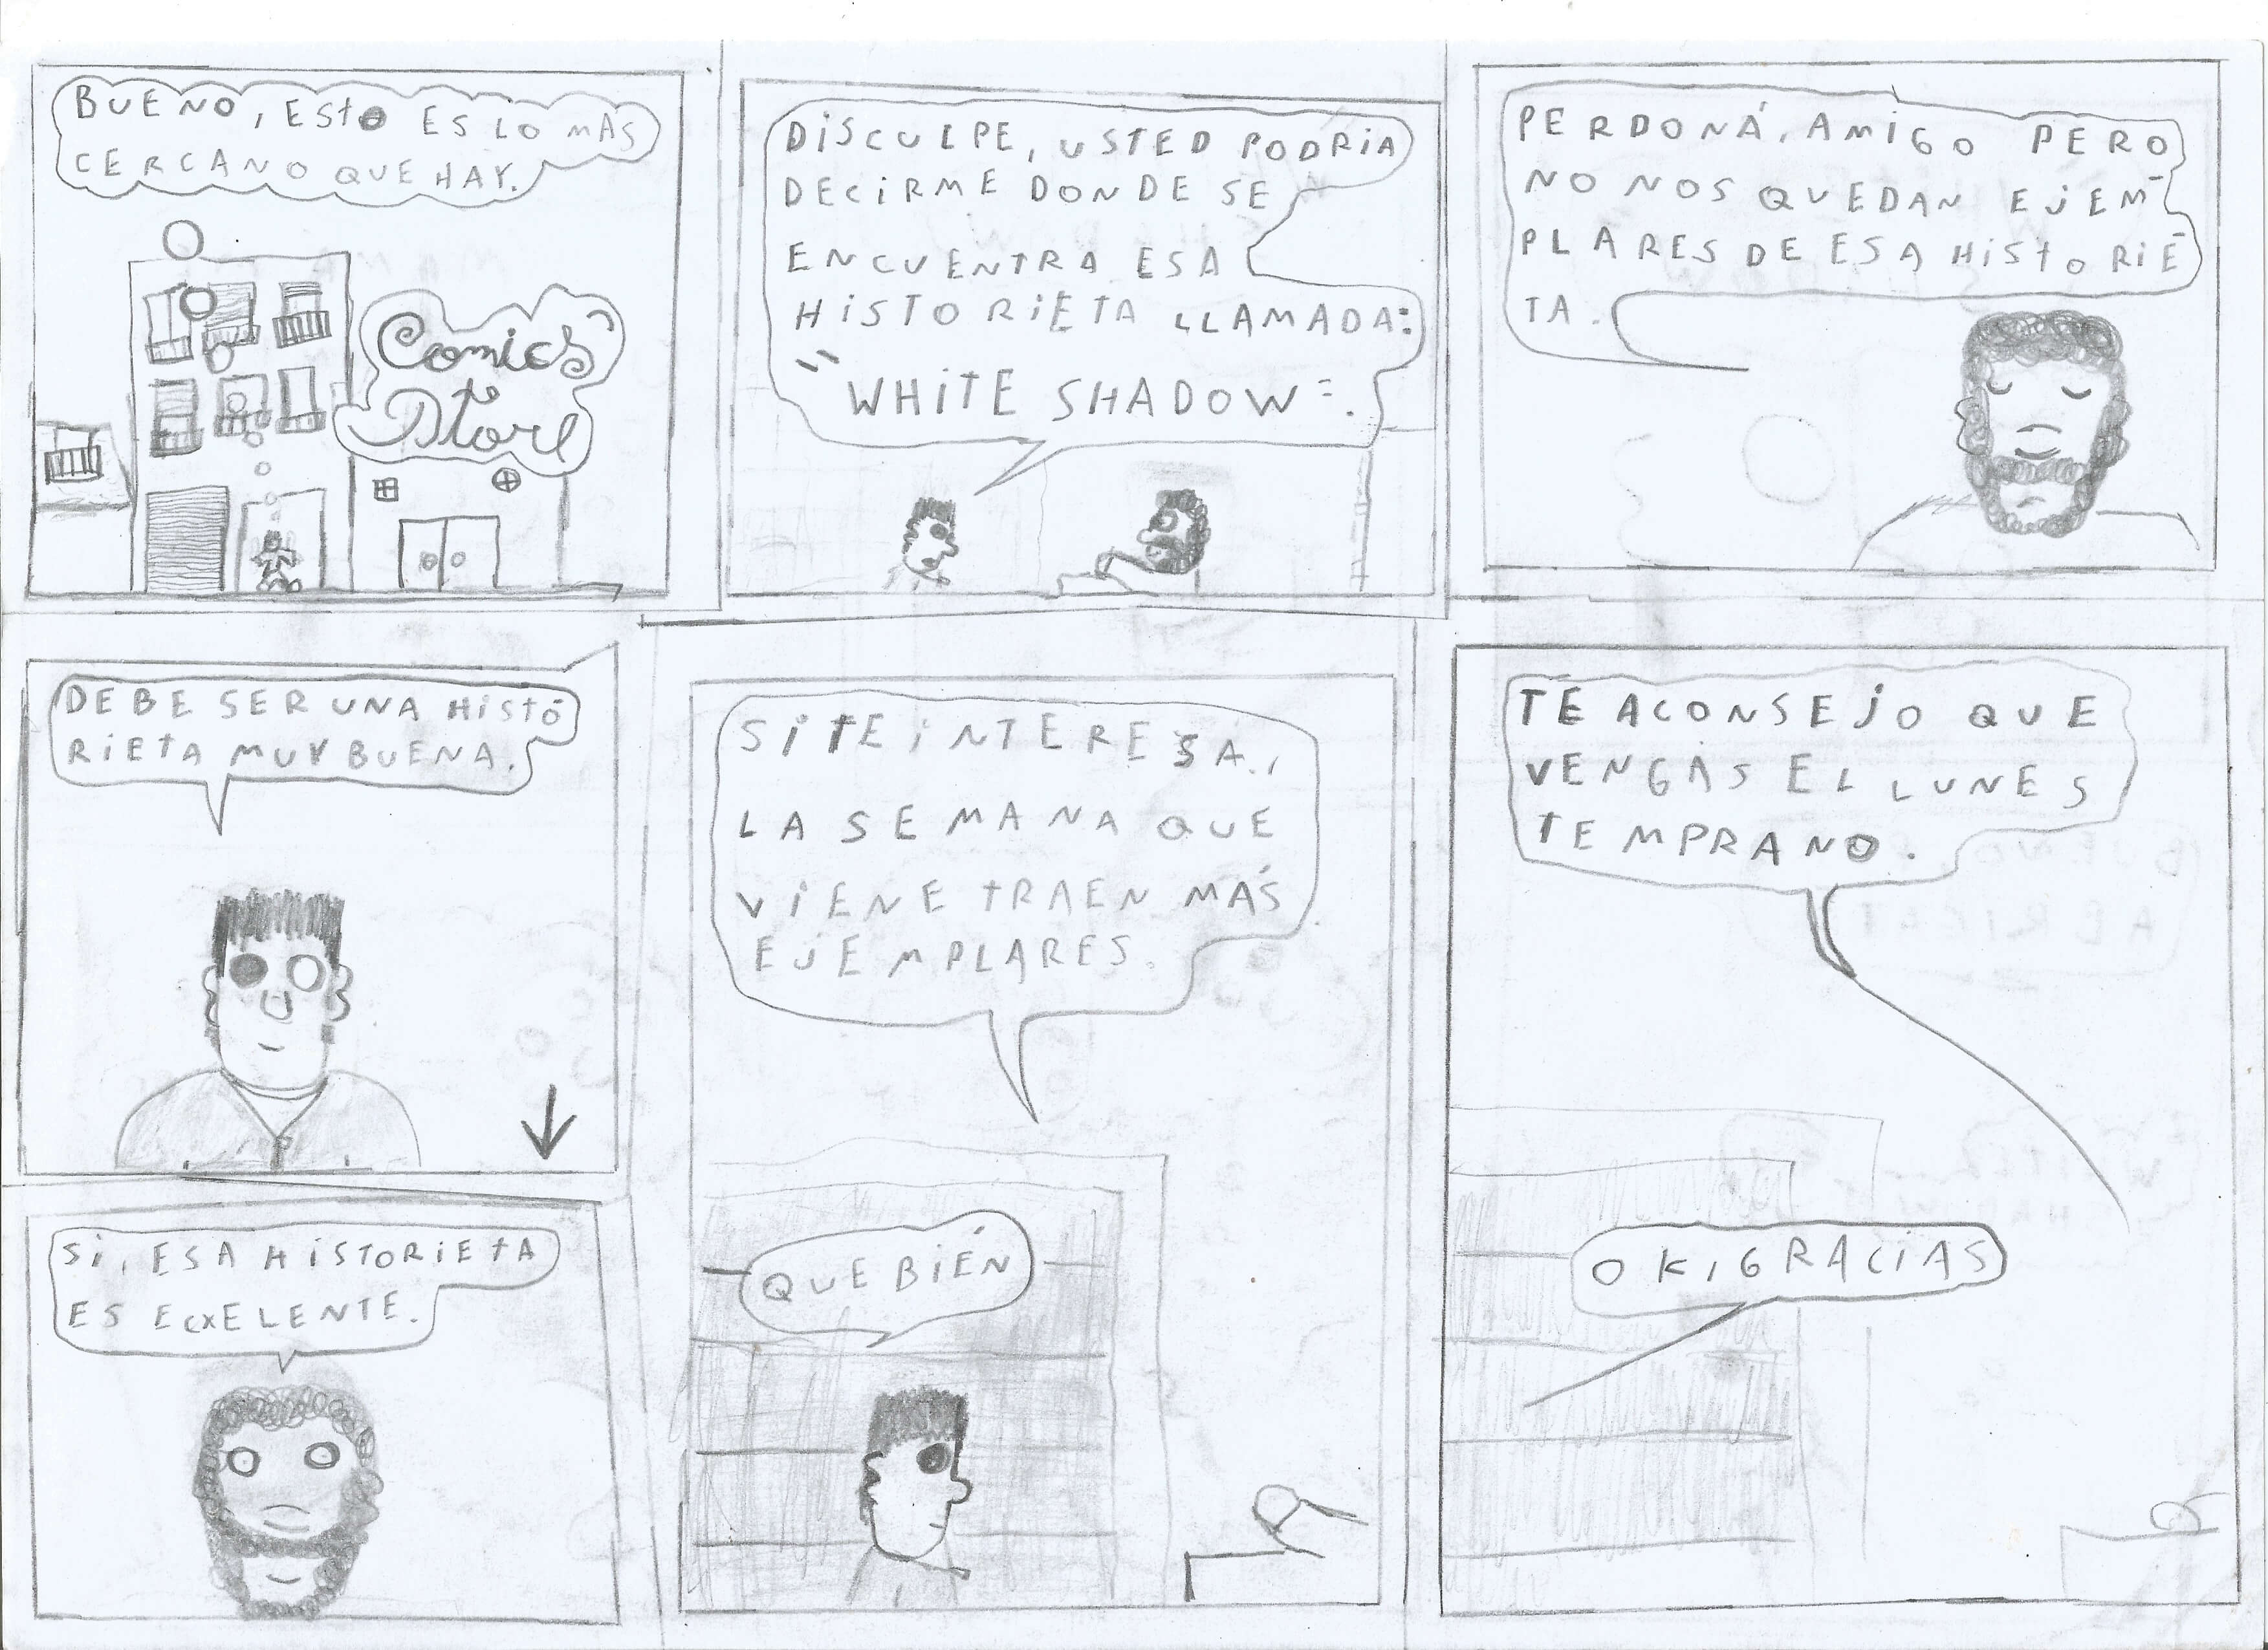 BUENO, ESTO ES LO MÁS
CERCANO QUE HAY.
Comics
Store
DISCULPE, USTED PODRIA
DECIRME DONDE SE
ENCUENTRA ESA
HISTORIETA LLAMADA:
"WHITE SHADOW".
PERDONÁ, AMIGO PERO
NO NOS QUEDAN EJEM-
PLARES DE ESA HISTORIE-
TA.
DEBE SER UNA HISTO-
RIETA MUY BUENA.
SI, ESA HISTORIETA
ES ECXELENTE.
SI TE INTERESA,
LA SEMANA QUE
VIENE TRAEN MÁS
EJEMPLARES.
QUE BIÉN
TE ACONSEJO QUE
VENGAS EL LUNES
TEMPRANO.
OK, GRACIAS